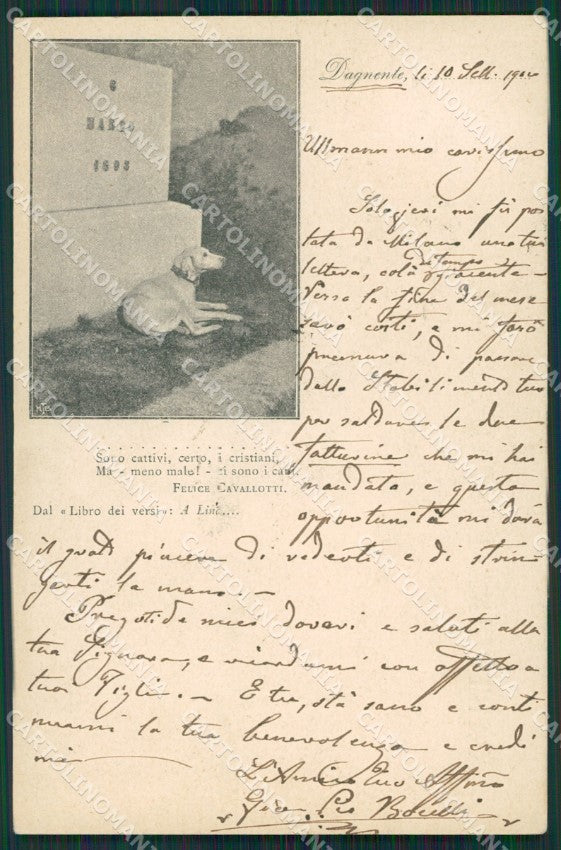 6
MARZO
1898
Sono cattivi, certo, i cristiani,
Ma - meno male! - ci sono i cani.
FELICE CAVALLOTTI.
Dal « Libro dei versi »: A Linc....
Dagnente, li 10 Sett. 190
Ullmann mio carissimo
Solo jeri mi fu por
tata da Milano una tua
lettera, colà da tempo giacente -
Verso la fine del mese
sarò costì, e mi farò
premura di passare
dallo Stabilimento tuo
per saldare le due
fatturine che mi hai
mandato, e questa
opportunità mi darà
il grato piacere di vederti e di strin
gerti la mano -
Pregoti de miei doveri e saluti alla
tua Signora, e ricordami con affetto a
tuo Figlio. - E tu, stà sano e conti
nuami la tua benevolenza e credi
mi
L'Amico tuo Affmo
Pio
CARTOLINOMANIA